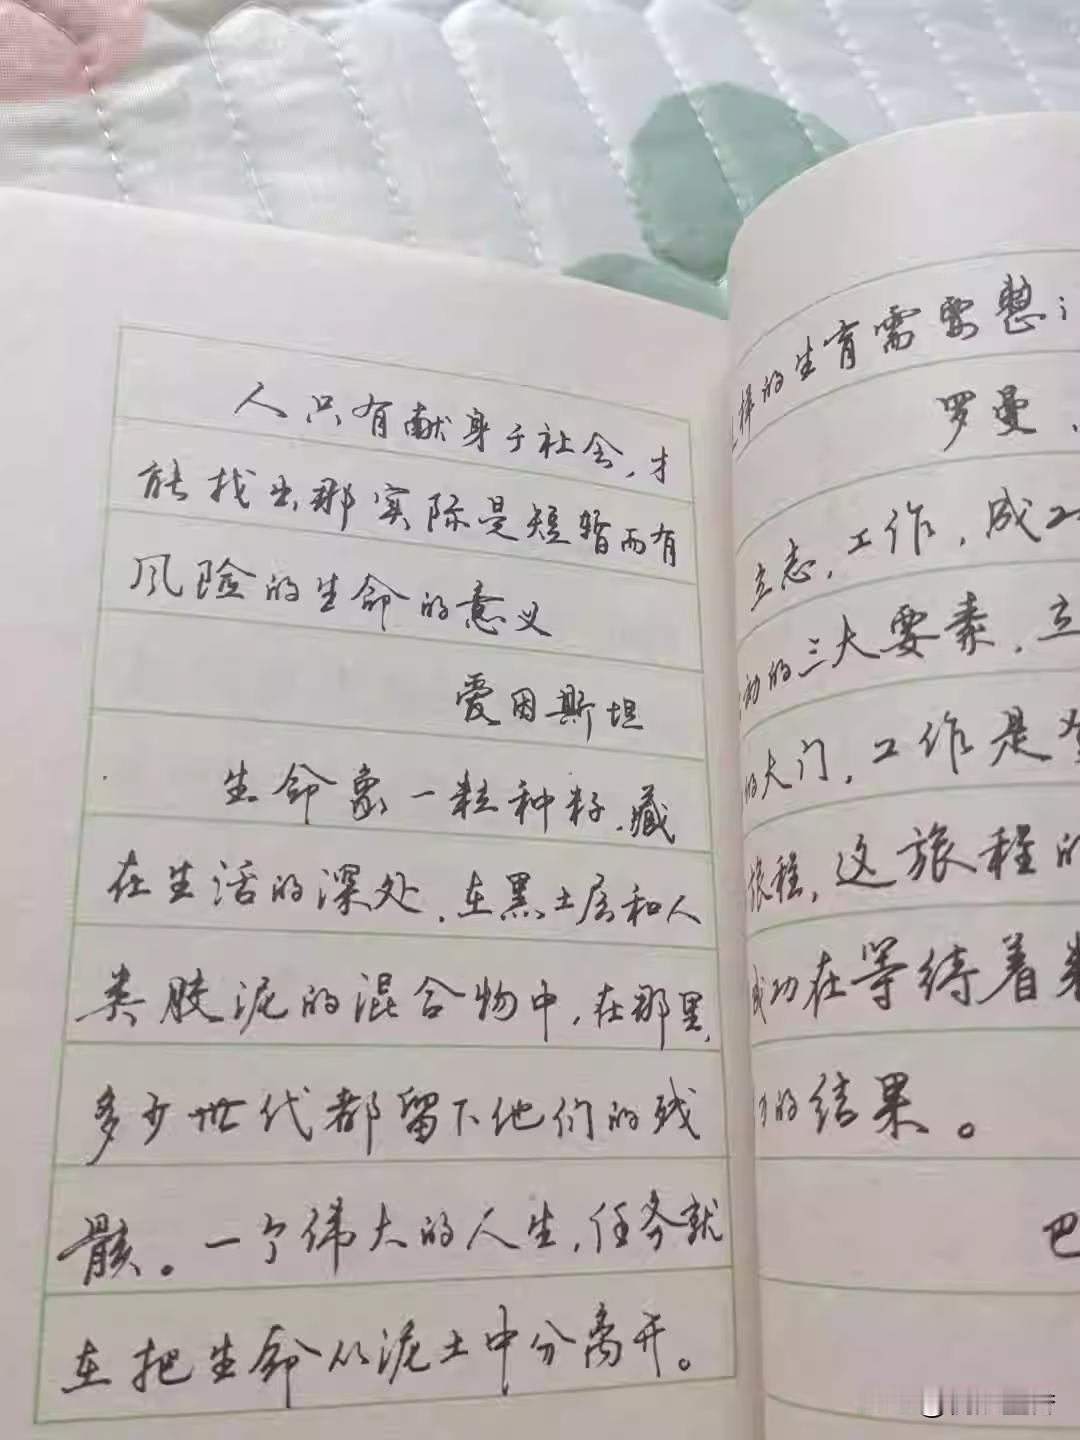 人只有献身于社会，才
能找出那实际是短暂而有
风险的生命的意义
爱因斯坦
生命象一粒种籽，藏
在生活的深处，在黑土层和人
类胶泥的混合物中，在那里，
多少世代都留下他们的残
骸。一个伟大的人生，任务就
在把生命从泥土中分离开。
样的生育需要整
罗曼、
立志，工作，成
动的三大要素，立
的大门，工作是
旅程，这旅程的
成功在等待着
的结果。
巴